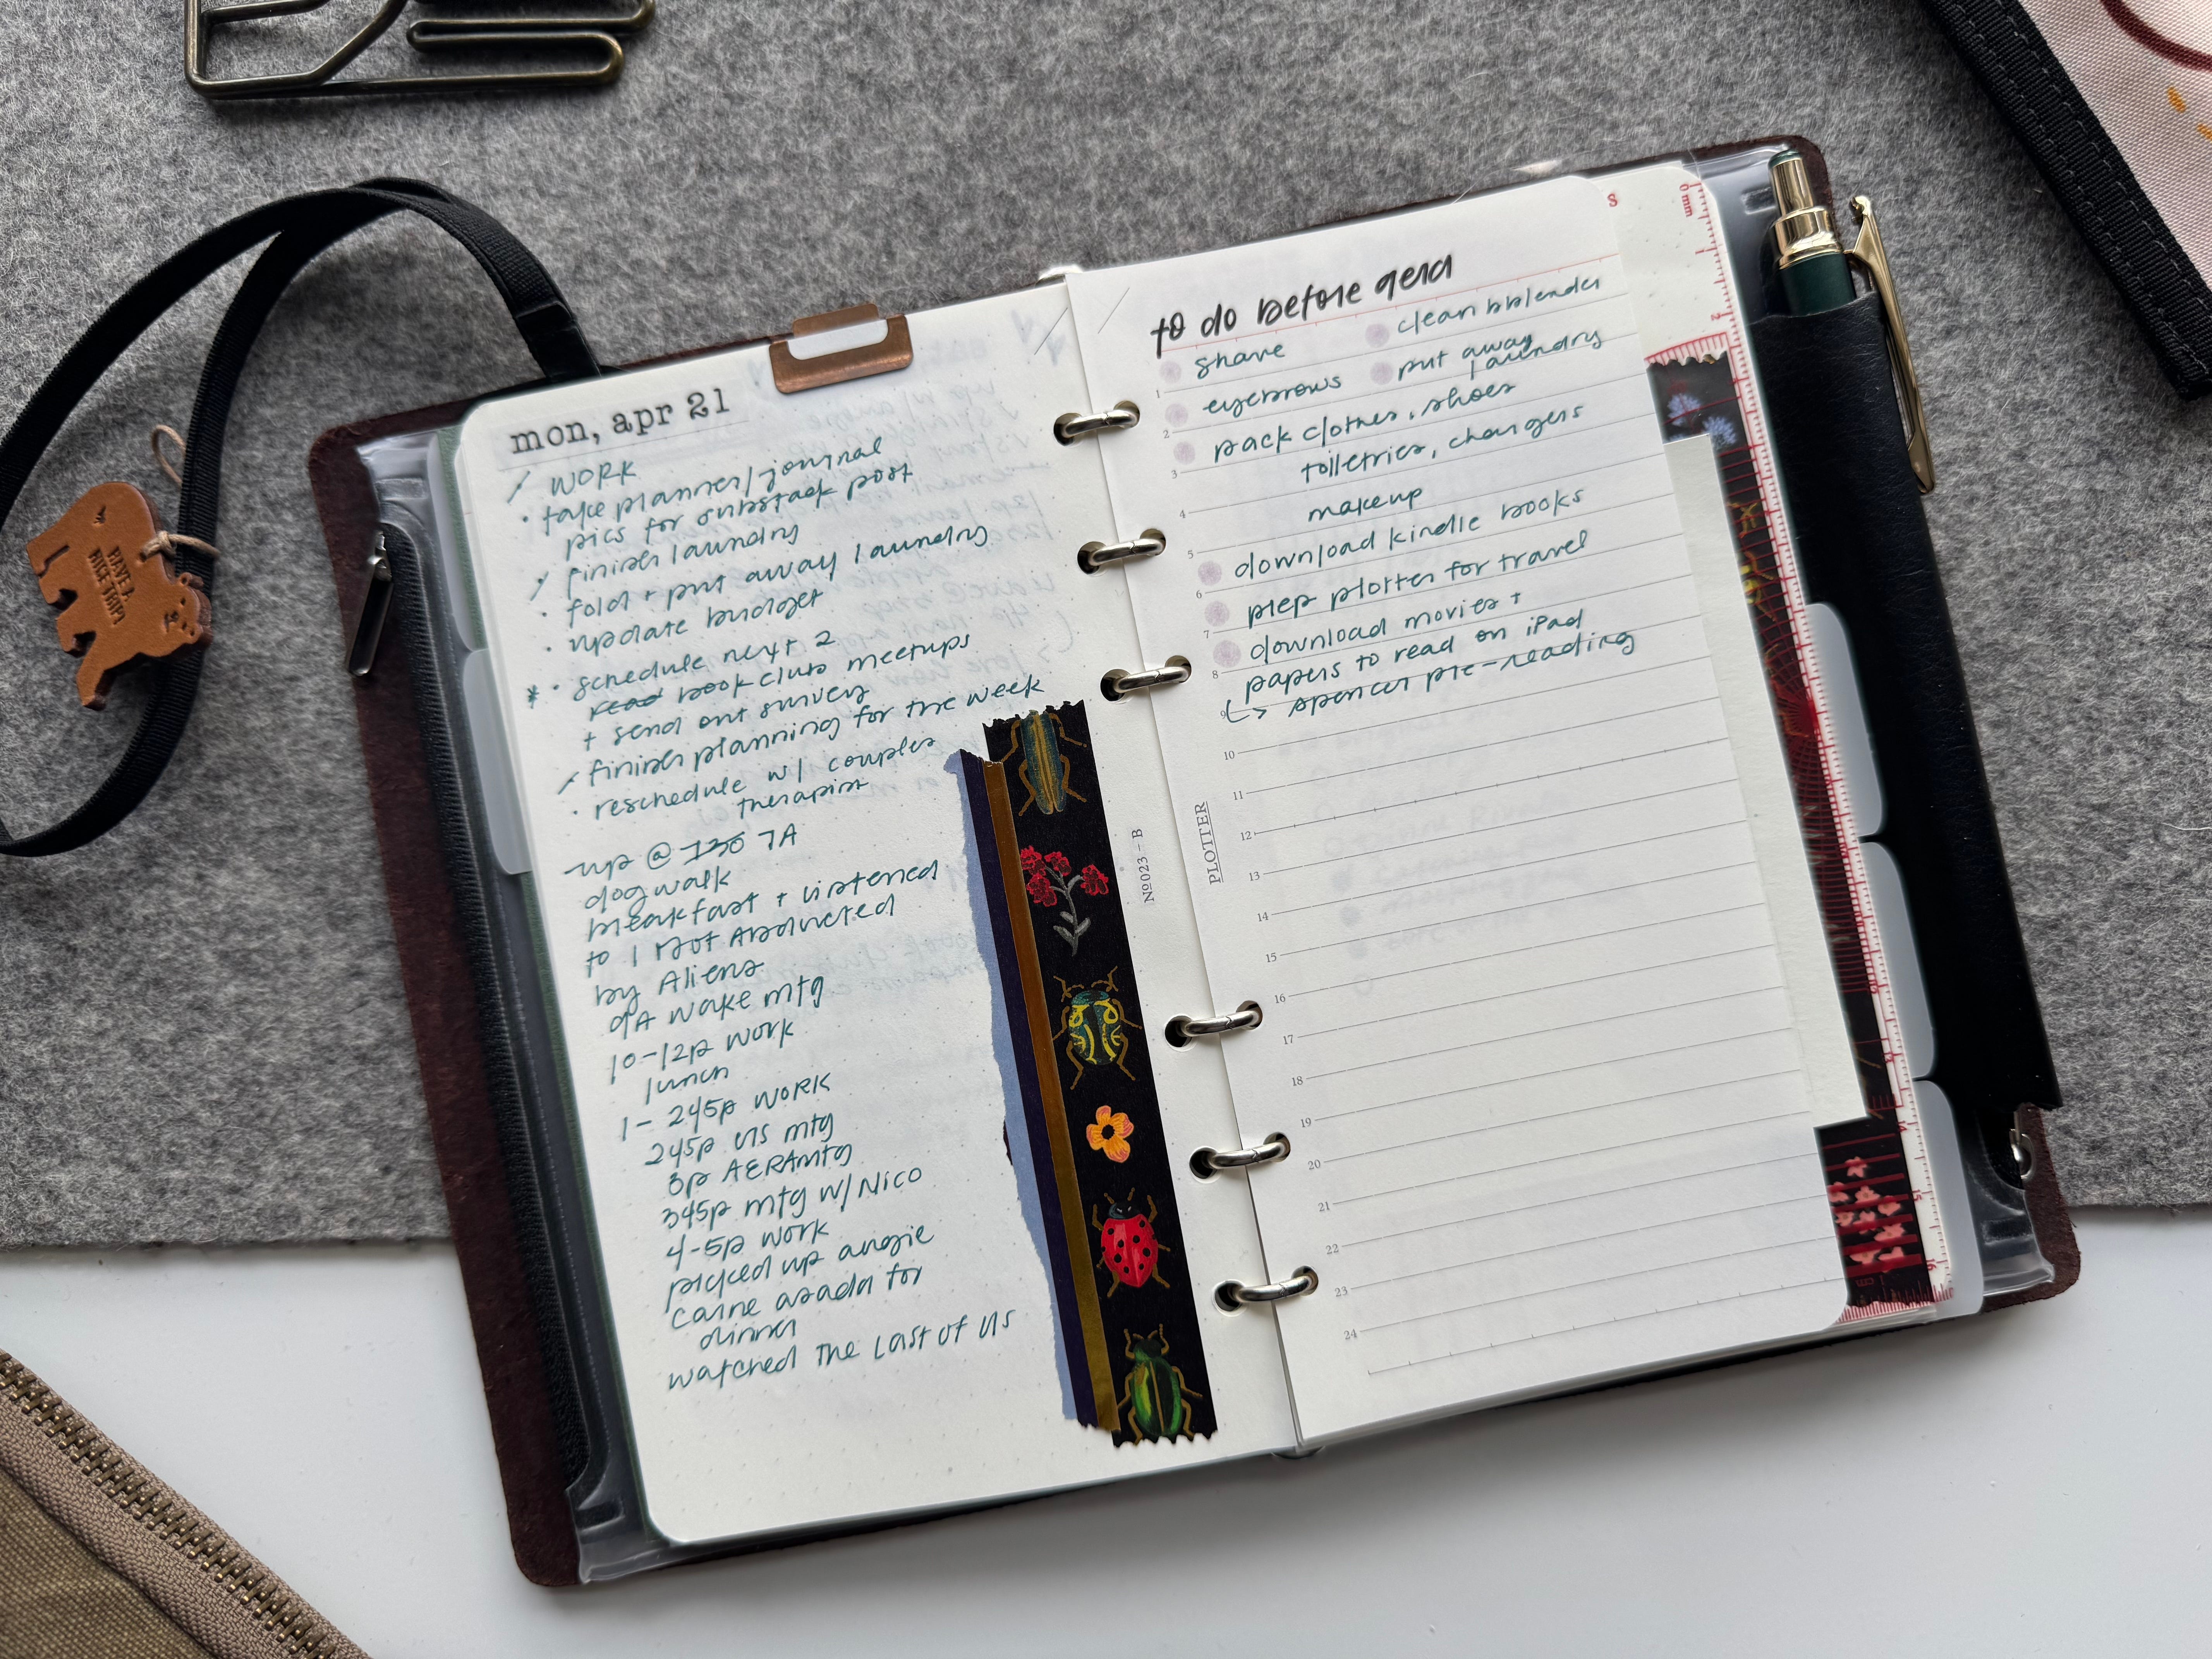 mon, apr 21
/ WORK
· take planner/journal
pics for substack post
/ finish laundry
· fold + put away laundry
· update budget
* · schedule next 2
read book club meetups
+ send out survey
/ finish planning for the week
· reschedule w/ couples
therapist
-up @ 730 7A
dogwalk
breakfast + listened
to I Got Abducted
by Aliens
9A wake mtg
10-12p work
lunch
1-245p WORK
245p us mtg
3p AERA mtg
345p mtg w/ Nico
4-5p work
picked up angie
carne asada for
dinner
watched The Last of Us
HAVE A
NICE TRIP!
Nº023-B
PLOTTER
to do before aera
shave
clean bblender
eyebrows
put away
laundry
pack clothes, shoes
toiletries, chargers
makeup
download kindle books
prep plotter for travel
download movies +
papers to read on iPad
↳ spencer pre-reading
1
2
3
4
5
6
7
8
9
10
11
12
13
14
15
16
17
18
19
20
21
22
23
24
S
0mm
1cm